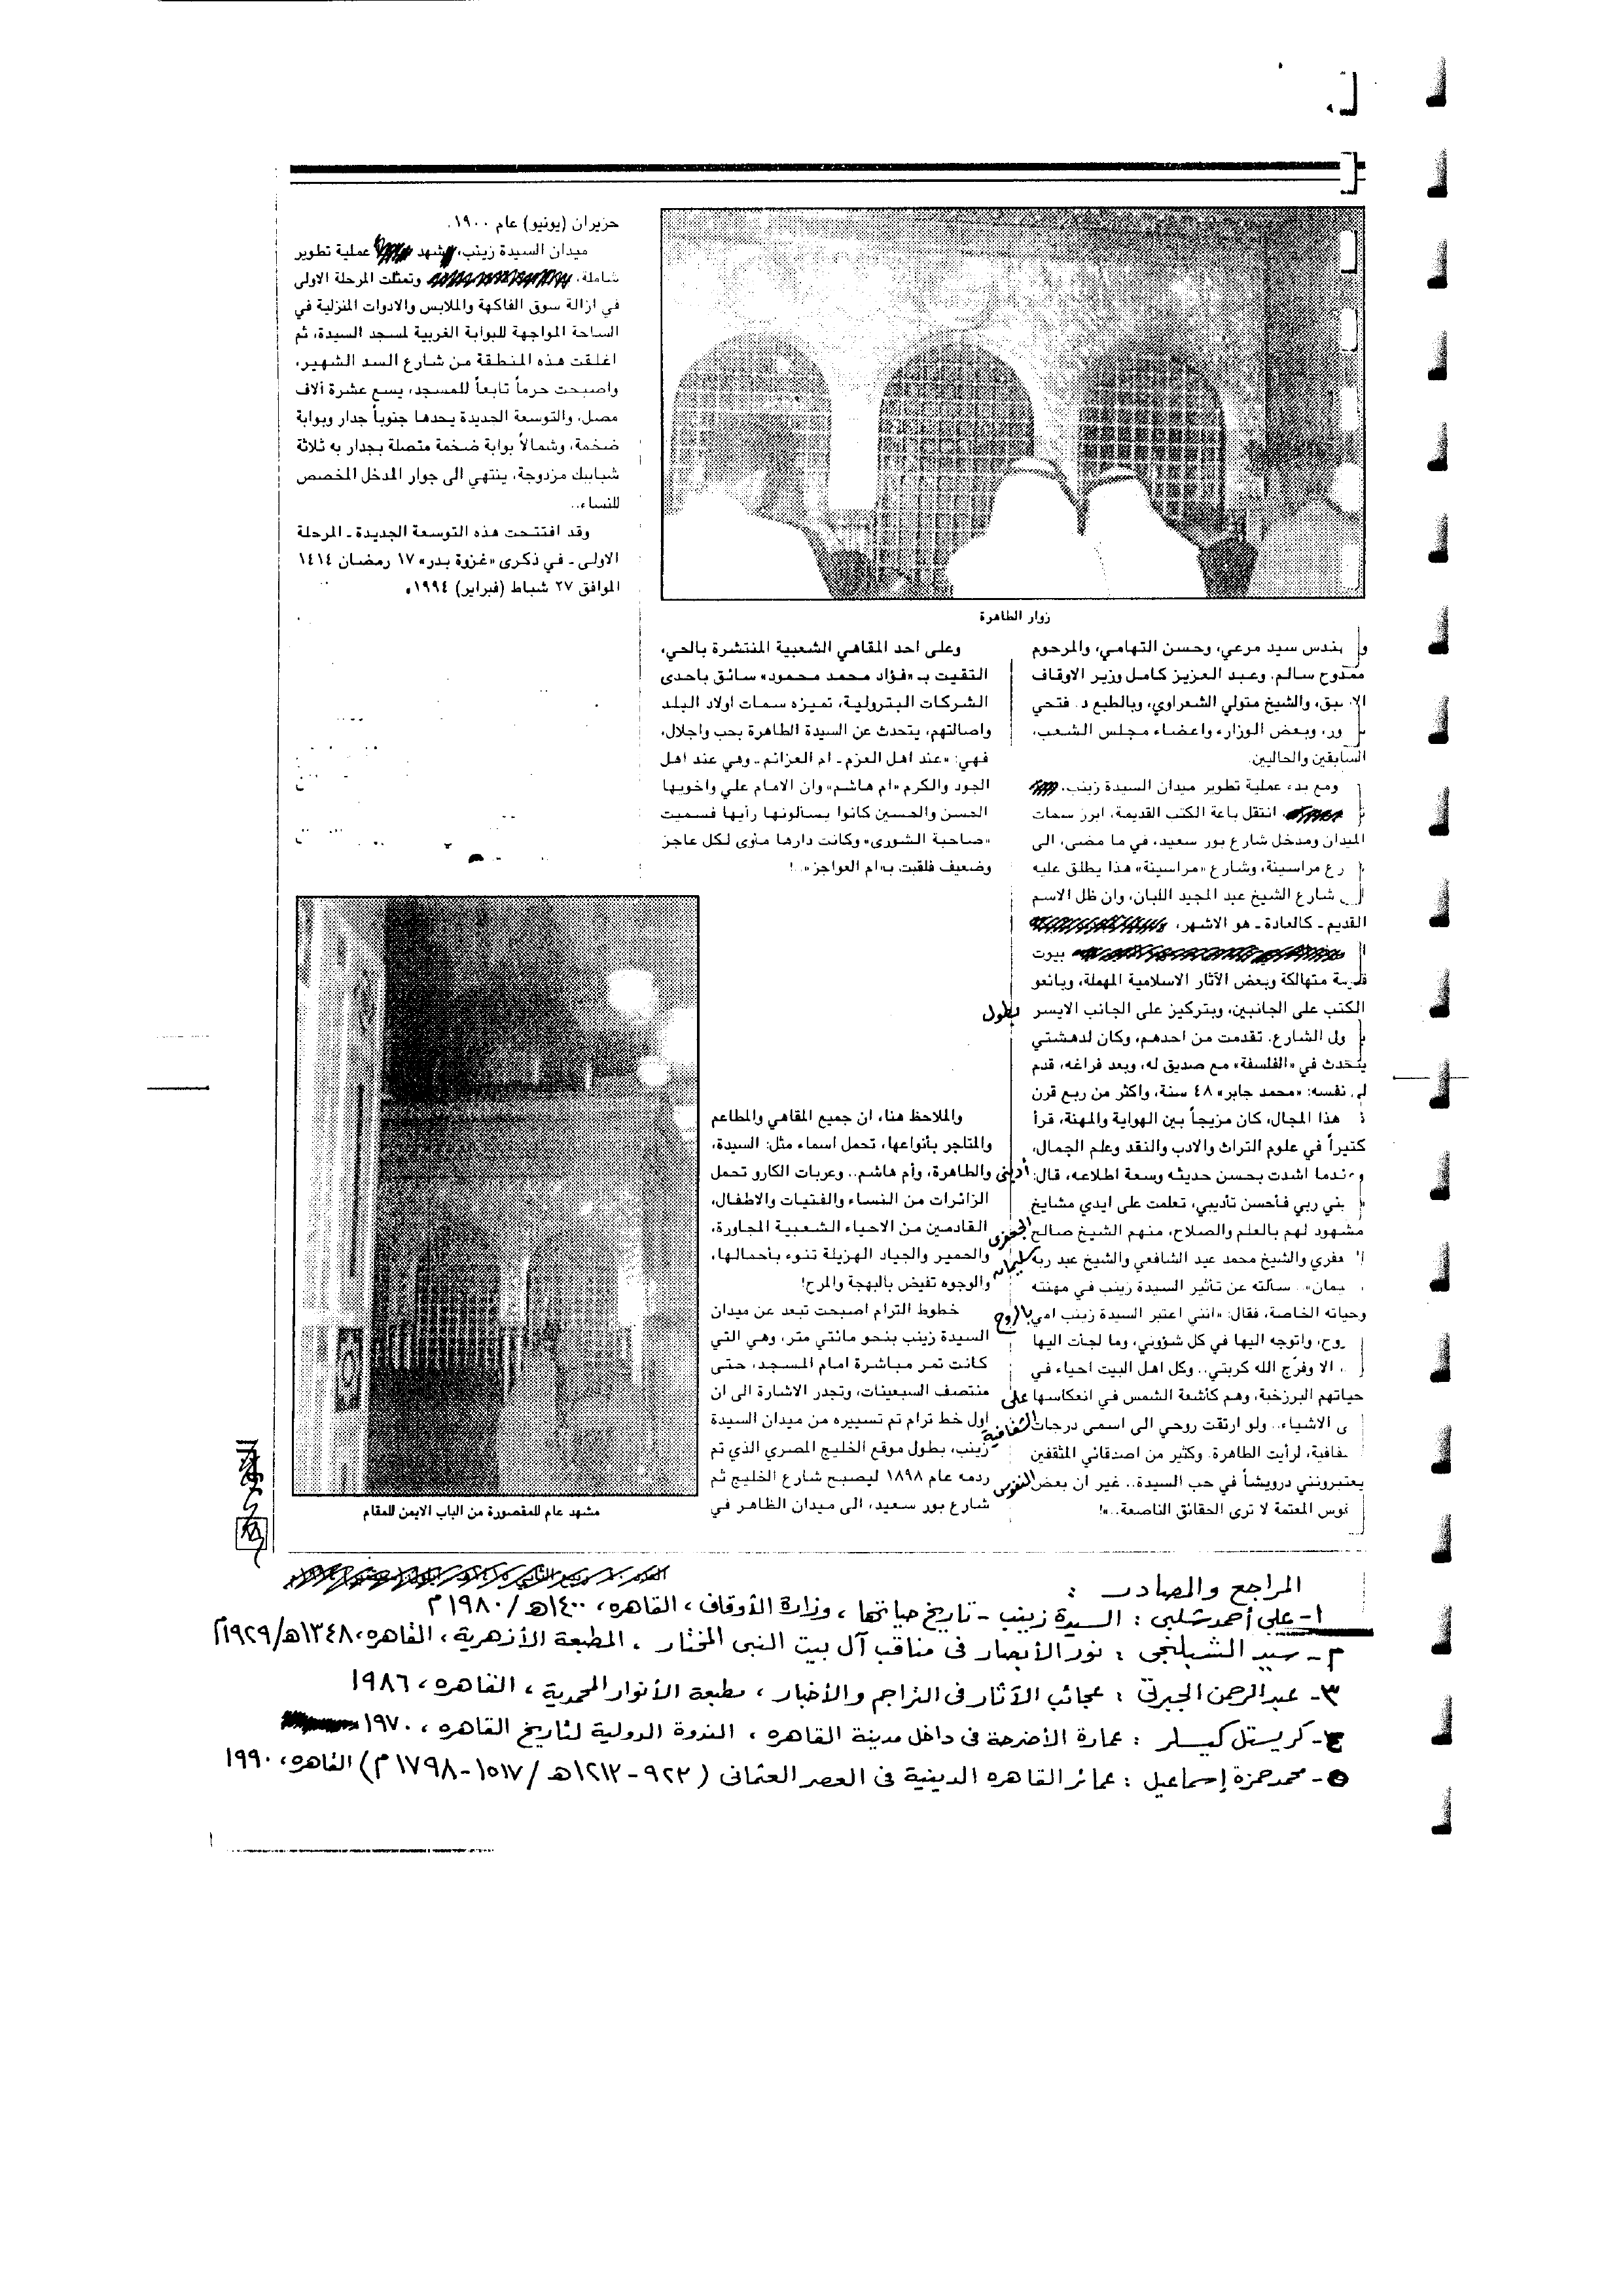 زوار الطاهرة
بندس سيد مرعي، وحسن التهامي، والمرحوم
ممدوح سالم. وعبد العزيز كامل وزير الاوقاف
سبق، والشيخ متولي الشعراوي، وبالطبع د. فتحي
ور، وبعض الوزراء واعضاء مجلس الشعب،
السابقين والحاليين.
ومع بدء عملية تطوير ميدان السيدة زينب،
انتقل باعة الكتب القديمة، ابرز سمات
الميدان ومدخل شارع بور سعيد، في ما مضى، الى
رع مراسينة، وشارع «مراسينة» هذا يطلق عليه
شارع الشيخ عبد المجيد اللبان، وان ظل الاسم
القديم ـ كالعادة ـ هو الاشهر،
بيوت
متهالكة وبعض الآثار الاسلامية المهملة، وبائعو
الكتب على الجانبين، وبتركيز على الجانب الايسر بطول
ول الشارع. تقدمت من احدهم، وكان لدهشتي
يتحدث في «الفلسفة» مع صديق له، وبعد فراغه، قدم
نفسه: «محمد جابر» ٤٨ سنة، واكثر من ربع قرن
هذا المجال، كان مزيجاً بين الهواية والمهنة، قرأ
كثيراً في علوم التراث والادب والنقد وعلم الجمال،
ندما اشدت بحسن حديثه وسعة اطلاعه، قال: أدبنى
بني ربي فأحسن تأديبي، تعلمت على ايدي مشايخ
مشهود لهم بالعلم والصلاح، منهم الشيخ صالح الجعفرى
عفري والشيخ محمد عيد الشافعي والشيخ عبد ربه سليمان
يمان». سألته عن تأثير السيدة زينب في مهنته
وحياته الخاصة، فقال: «انني اعتبر السيدة زينب امي بالروح
روح، واتوجه اليها في كل شؤوني، وما لجأت اليها
الا وفرّج الله كربتي.. وكل اهل البيت احياء في
حياتهم البرزخية، وهم كأشعة الشمس في انعكاسها على
ى الاشياء.. ولو ارتقت روحي الى اسمى درجات الشفافية
فافية، لرأيت الطاهرة. وكثير من اصدقائي المثقفين
يعتبرونني درويشاً في حب السيدة.. غير ان بعض النفوس
فوس المعتمة لا ترى الحقائق الناصعة..»!
وعلى احد المقاهي الشعبية المنتشرة بالحي،
التقيت بـ «فؤاد محمد محمود» سائق باحدى
الشركات البترولية، تميزه سمات اولاد البلد
واصالتهم، يتحدث عن السيدة الطاهرة بحب واجلال،
فهي: «عند اهل العزم ـ ام العزائم ـ وهي عند اهل
الجود والكرم «ام هاشم» وان الامام علي واخويها
الحسن والحسين كانوا يسألونها رأيها فسميت
«صاحبة الشورى» وكانت دارها مأوى لكل عاجز
وضعيف فلقبت بـ«ام العواجز»..!
والملاحظ هنا، ان جميع المقاهي والمطاعم
والمتاجر بأنواعها، تحمل اسماء مثل: السيدة،
والطاهرة، وأم هاشم.. وعربات الكارو تحمل
الزائرات من النساء والفتيات والاطفال،
القادمين من الاحياء الشعبية المجاورة،
والحمير والجياد الهزيلة تنوء بأحمالها،
والوجوه تفيض بالبهجة والمرح!
خطوط الترام اصبحت تبعد عن ميدان
السيدة زينب بنحو مائتي متر، وهي التي
كانت تمر مباشرة امام المسجد، حتى
منتصف السبعينات، وتجدر الاشارة الى ان
اول خط ترام تم تسييره من ميدان السيدة
زينب، بطول موقع الخليج المصري الذي تم
ردمه عام ١٨٩٨ ليصبح شارع الخليج ثم
شارع بور سعيد، الى ميدان الظاهر في
حزيران (يونيو) عام ١٩٠٠.
ميدان السيدة زينب، شهد عملية تطوير
شاملة، وتمثلت المرحلة الاولى
في ازالة سوق الفاكهة والملابس والادوات المنزلية في
الساحة المواجهة للبوابة الغربية لمسجد السيدة، ثم
اغلقت هذه المنطقة من شارع السد الشهير،
واصبحت حرماً تابعاً للمسجد، يسع عشرة آلاف
مصل، والتوسعة الجديدة يحدها جنوباً جدار وبوابة
ضخمة، وشمالاً بوابة ضخمة متصلة بجدار به ثلاثة
شبابيك مزدوجة، ينتهي الى جوار المدخل المخصص
للنساء..
وقد افتتحت هذه التوسعة الجديدة ـ المرحلة
الاولى ـ في ذكرى «غزوة بدر» ١٧ رمضان ١٤١٤
الموافق ٢٧ شباط (فبراير) ١٩٩٤.
مشهد عام للمقصورة من الباب الايمن للمقام
المراجع والمصادر :
١- علي أحمد شلبى : السيدة زينب - تاريخ حياتها ، وزارة الأوقاف ، القاهره ، ١٤٠٠هـ / ١٩٨٠م
٢- سيد الشبلنجى : نور الأبصار فى مناقب آل بيت النبى المختار ، المطبعة الأزهرية ، القاهره ، ١٣٤٨هـ/١٩٢٩م
٣- عبد الرحمن الجبرتى : عجائب الآثار فى التراجم والأخبار ، مطبعة الأنوار المحمدية ، القاهره ، ١٩٨٦
٤- كريستل كيسلر : عمارة الأضرحة فى داخل مدينة القاهره ، الندوة الدولية لتاريخ القاهره ، ١٩٧٠
٥- محمد حمزة إسماعيل : عمائر القاهره الدينية فى العصر العثمانى ( ٩٢٣ - ١٢١٣هـ / ١٥١٧ - ١٧٩٨م ) القاهره ، ١٩٩٠